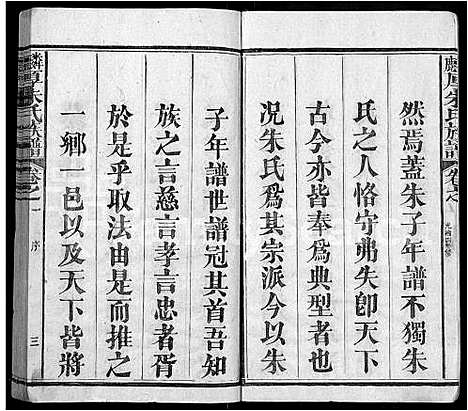 然焉蓋朱子年譜不獨朱
氏之人恪守弗失卽天下
古今亦皆奉爲典型者也
況朱氏爲其宗派今以朱
子年譜世譜冠其首吾知
族之言慈言孝言忠者胥
於是乎取法由是而推之
一鄉一邑以及天下皆將
朱氏族譜
卷之一
序
三